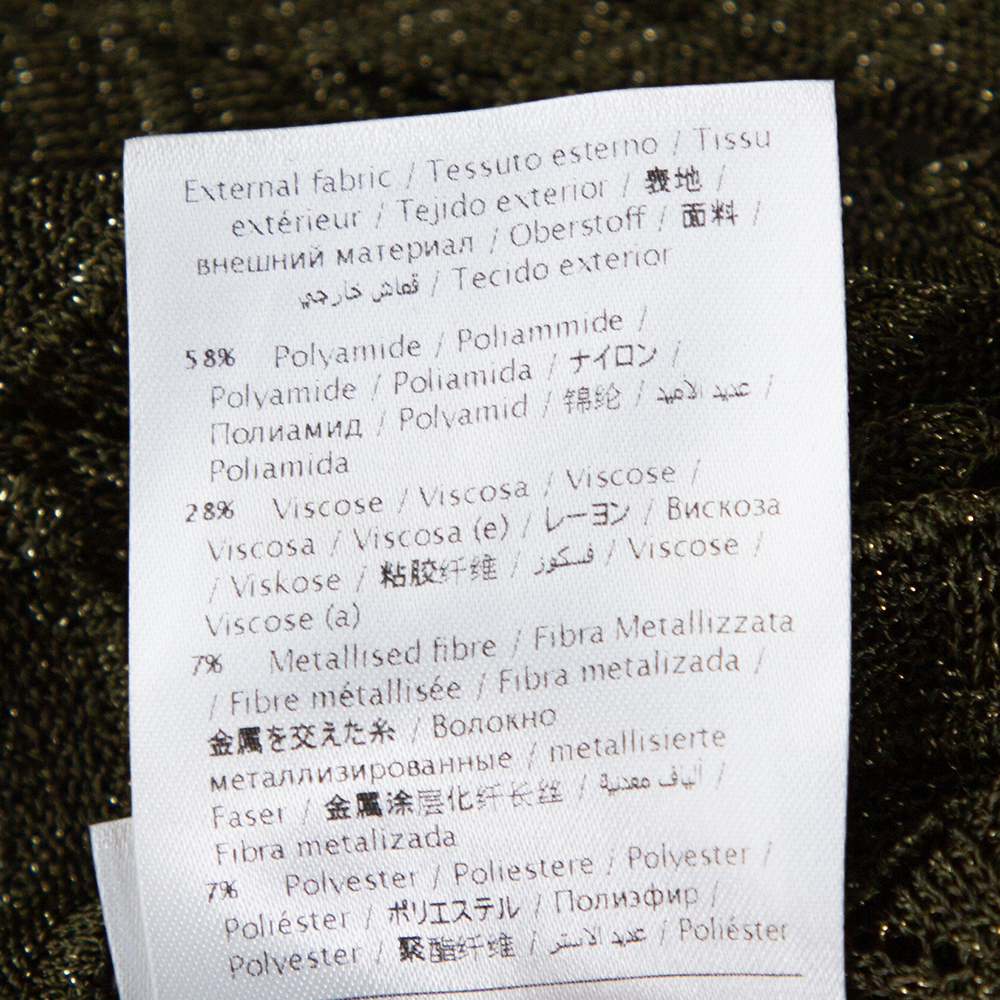 External fabric / Tessuto esterno / Tissu
extérieur / Tejido exterior / 表地 /
внешний материал / Oberstoff / 面料 /
قماش خارجي / Tecido exterior
58% Polyamide / Poliammide /
Polyamide / Poliamida / ナイロン /
Полиамид / Polyamid / 锦纶 / عديد الأميد /
Poliamida
28% Viscose / Viscosa / Viscose /
Viscosa / Viscosa (e) / レーヨン / Вискоза
/ Viskose / 粘胶纤维 / فسكوز / Viscose /
Viscose (a)
7% Metallised fibre / Fibra Metallizzata
/ Fibre métallisée / Fibra metalizada /
金属を交えた糸 / Волокно
металлизированные / metallisierte
Faser / 金属涂层化纤长丝 / ألياف معدنية /
Fibra metalizada
7% Polyester / Poliestere / Polyester /
Poliéster / ポリエステル / Полиэфир /
Polyester / 聚酯纤维 / عديد الاستر / Poliéster